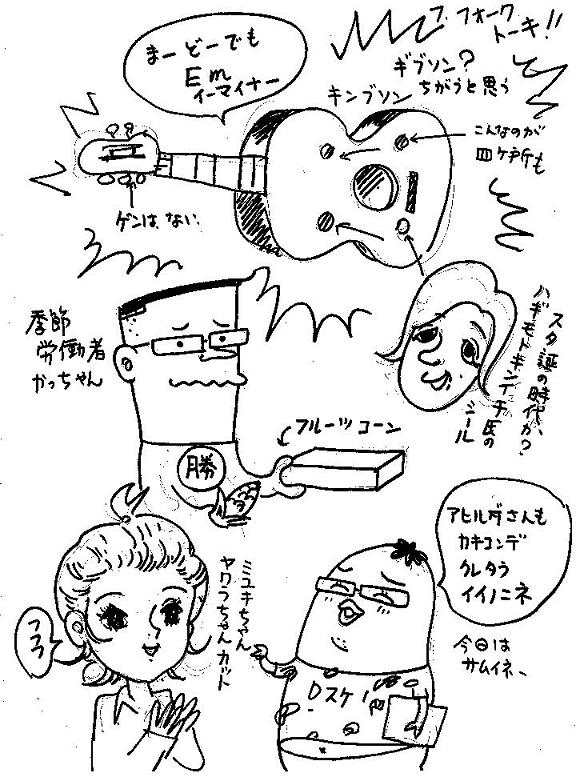 フ、フォーク
トーキ!!
まーどーでも
Em
イーマイナー
ギブソン?
ちがうと思う
キンブソン
こんなのが
四ヶ所も
ゲンは、ない、
季節
労働者
かっちゃん
スタ誕の時代か?
ハギモトキンイチ氏の
シール
フルーツコーン
勝
アヒルダさんも
カキコンデ
クレタラ
イイノニネ
今日は
サムイネ、
ミユキちゃん
ヤワラちゃんカット
フフ
Dスケ